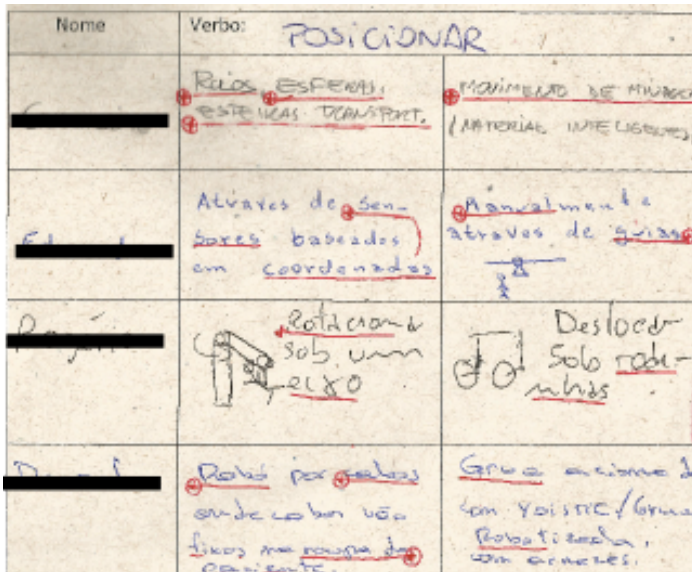 Nome
Verbo: POSICIONAR
ROLOS, ESFERAS,
ESTEIRAS TRANSPORT.
MOVIMENTO DE
/MATERIAL INTELIGENTE
Através de sen-
sores baseados
em coordenadas
Manualmente
através de guias
Rotaciona
sob um
eixo
Deslocar
Sob rodi-
nhas
Robô por cabos
onde cabos vão
fixos na roupa do
paciente.
Grua aciona
com /Grua
Robotizada,
com arneses.